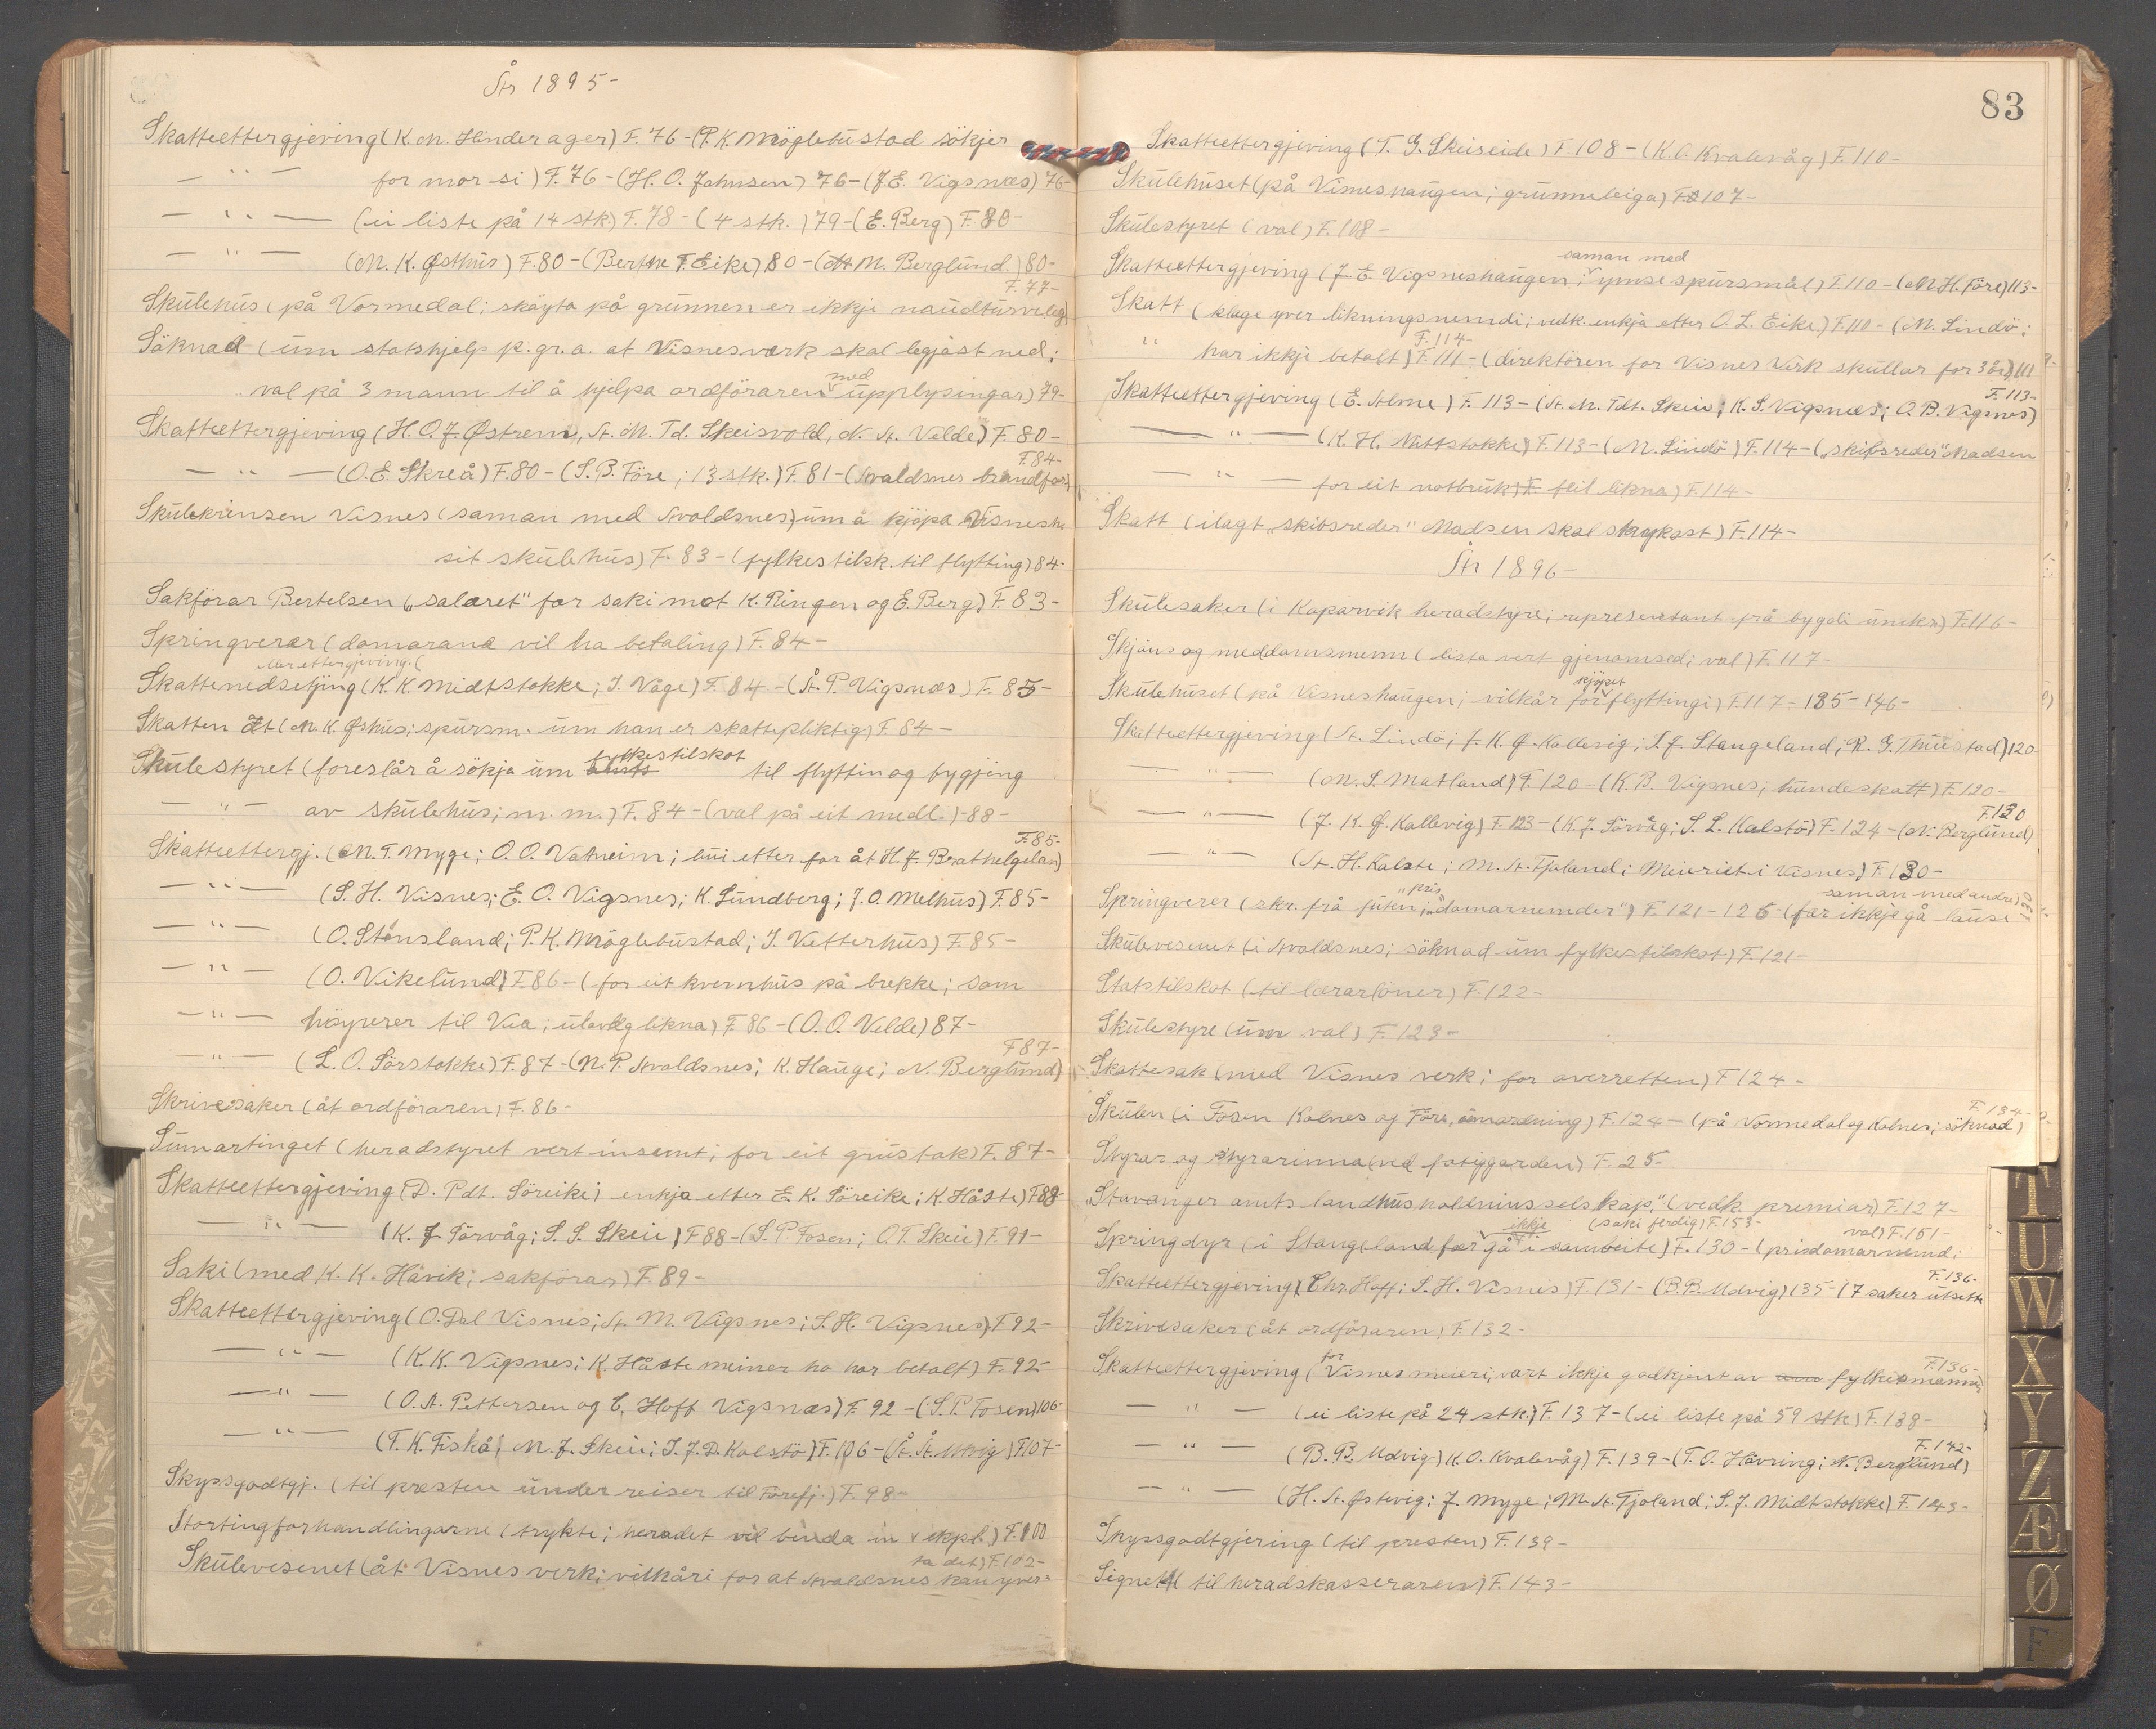 År 1895-
Skatteettergjeving (K. M. Hinderager) F. 76 - (P. K. Möglebustad sökjer
— " — for mor si) F. 76 - (H. O. Johnsen) 76 - (J. E. Vigsnæs) 76-
— " — (ei liste på 14 stk.) F. 78 - (4 stk.) 79 - (E. Berg) F. 80-
— " — (M. K. Østhus) F. 80 - (Berthe T. Eike) 80 - (M. Berglund.) 80-
F. 77-
Skülehüs (på Vormedal; skøyta på grünnen er ikkji naudturveleg)
Söknad (üm statshjelp p. gr. a. at Visnesværk skal leggjast ned;
val på 3 mann til å hjelpa ordföraren med üpplysingar) 79-
Skatteettergjeving (H. O. J. Østrem, A. M. Td. Skeisvold, N. A. Velde) F. 80-
F. 84-
— " — (O. E. Skreå) F. 80 - (S. B. Före; 13 stk.) F. 81 - (Avaldsnes brandfors)
Skülekrinsen Visnes (saman med Avaldsnes) üm å kjöpa Visnesh.
sit skülehüs) F. 83 - (fylkestilsk. til flytting) 84-
Sakförar Bertelsen („salæret" for saki mot K. Ringen og E. Berg) F. 83-
Springverar (domarane vil ha betaling) F. 84-
eller ettergjeving (
Skattenedsetjing (K. K. Midtstokke; I. Våge) F. 84 - (A. P. Vigsnæs) F. 85-
Skatten åt (M. K. Øshus; spürsm. üm han er skattepliktig) F. 84-
Skülestyret (foreslår å sökja üm fylkestilskot til flytting og bygjing
— " — av skülehüs; m. m.) F. 84 - (val på eit medl.) - 88-
F. 85-
Skatteettergj. (M. T. Myge; O. O. Vatneim; büi etter far åt H. J. Brathelgelan)
— " — (S. H. Visnes; E. O. Vigsnes; K. Lündberg; J. O. Melhüs) F. 85-
— " — (O. Stensland; P. K. Möglebüstad; I. Vetterhüs) F. 85-
— " — (O. Vikelund) F. 86 - (for eit kvernhüs på brekke; som
— " — höyrer til Vea; ülovleg likna) F. 86 - (O. O. Velde) 87-
F 87-
— " — (L. O. Sörstokke) F. 87 - (N. P. Avaldsnes; K. Hauge; N. Berglund)
Skrivesaker (åt ordföraren) F. 86-
Sümartinget (heradstyret vert insemt; for eit grüstak) F. 87-
Skatteettergjeving (D. Pdt. Söreike; enkja etter E. K. Söreike; K. Håste) F 88-
— " — (K. J. Sörvåg; S. S. Skeie) F 88 - (S. P. Fosen; O. T. Skeie) F. 91-
Saki (med K. K. Håvik; sakförar) F. 89-
Skatteettergjeving (O. Dal Visnes; A. M. Vigsnes; S. H. Vigsnes) F 92-
— " — (K. K. Vigsnes; K. Håste meiner ho har betalt) F. 92-
— " — (O. A. Pettersen og C. Hoff Vigsnæs) F. 92 - (S. P. Fosen) 106-
— " — (T. K. Fiskå; M. J. Skeie; I. J. D. Kalstö) F. 106 - (Å. Å. Utvig) F 107-
Skyssgodtgj. (til presten ünder reiser til Förefj.) F. 98-
Stortingforhandlingarne (trykte; heradet vil binda in v ekpl.) F. 100
ta det) F. 102-
Skülevesenet (åt Visnes verk; vilkåri for at Avaldsnes kan yver-
83
Skatteettergjeving (T. G. Skeiseide) F. 108 - (K. O. Kvalevåg) F. 110-
Skülehüset (på Visneshaugen; grünneleiga) F. 107-
Skülestyret (val) F. 108-
saman med
Skatteettergjeving (J. E. Vigsneshaugen; ymse spursmål) F. 110 - (M. H. Före) 113-
Skatt (klage yver likningsnemdi; vedk. enkja etter O. L. Eike) F. 110 - (M. Lindö;
F. 114-
" har ikkje betalt) F. 111 - (direktören for Visnes Verk sküllar for 3 år) 111
F. 113-
Skatteettergjeving (E. Alme) F. 113 - (A. M. Tdt. Skeie; K. S. Vigsnæs; O. B. Vigsnes)
— " — (K. H. Mittstokke) F. 113 - (M. Lindö) F. 114 - („skibsreder" Madsen
— " — for eit notbrük feil likna) F. 114-
Skatt (ilagt „skibsreder" Madsen skal strykast) F. 114-
År 1896-
Skülesaker (i Kopervik heradstyre; representant frå bygdi ünskr.) F. 116-
Skjöns og meddomsmenn (lista vert gjenomsed; val) F. 117-
kjöpet
Skülehüset (på Visneshaugen; vilkår for flyttingi) F. 117 - 185 - 146-
Skatteettergjeving (A. Lindö; J. K. J. Kallevig; S. J. Stangeland; R. G. Thuestad) 120-
— " — (M. S. Matland) F. 120 - (K. B. Vigsnes, hündeskatt) F. 120-
F. 130
— " — (J. K. J. Kallevig) F. 123 - (K. J. Sörvåg; S. L. Kalstö) F. 124 - (N. Berglund)
— " — (A. H. Kalste; M. A. Tjoland; Meieriet i Visnes) F. 130-
saman med andre)
Springverer (skr. frå füten; „prisdomarnemder") F. 121 - 126 - (fær ikkje gå lause
Skülevesenet (i Avaldsnes; söknad üm fylkestilskot) F. 121-
Statstilskot (til lærarlöner) F. 122-
Skülestyre (üm val) F. 123-
Skattesak (med Visnes verk; for overretten) F 124-
F. 134-
Skülen (i Fosen Kolnes og Före, ümordning) F. 124 - (på Vormedal og Kolnes; söknad)
Styrar og styrarinna (ved fatiggarden) F. 25-
„Stavanger amts landhüshollniüsselskap" (vedk. premiar) F. 127-
ikkje (saki ferdig) F. 153- val) F. 151-
Springdyr (i Stangeland fær gå i sambeite) F. 130 - (prisdomarnemnd;
F. 136-
Skatteettergjeving (Chr. Hoff; S. H. Visnes) F. 131 - (B. B. Udvig) 135 - (7 saker utsette
Skrivesaker (åt ordföraren) F. 132-
for F. 136-
Skatteettergjeving (Visnes meieri; vart ikkje godkjent av fylkesmannen
— " — (ei liste på 24 stk.) F. 137 - (ei liste på 59 stk) F. 138-
F. 142-
— " — (B. B. Udvig) K. O. Kvalevåg) F. 139 - (T. O. Hövring; N. Berglund)
— " — (H. A. Østevig; J. Myge; M. A. Tjoland; S. J. Midtstokke) F. 143-
Skyssgodtgjering (til presten) F. 139-
Signett (til heradskasseraren) F. 143-
T
U
W
X
Y
Z
Æ
Ø